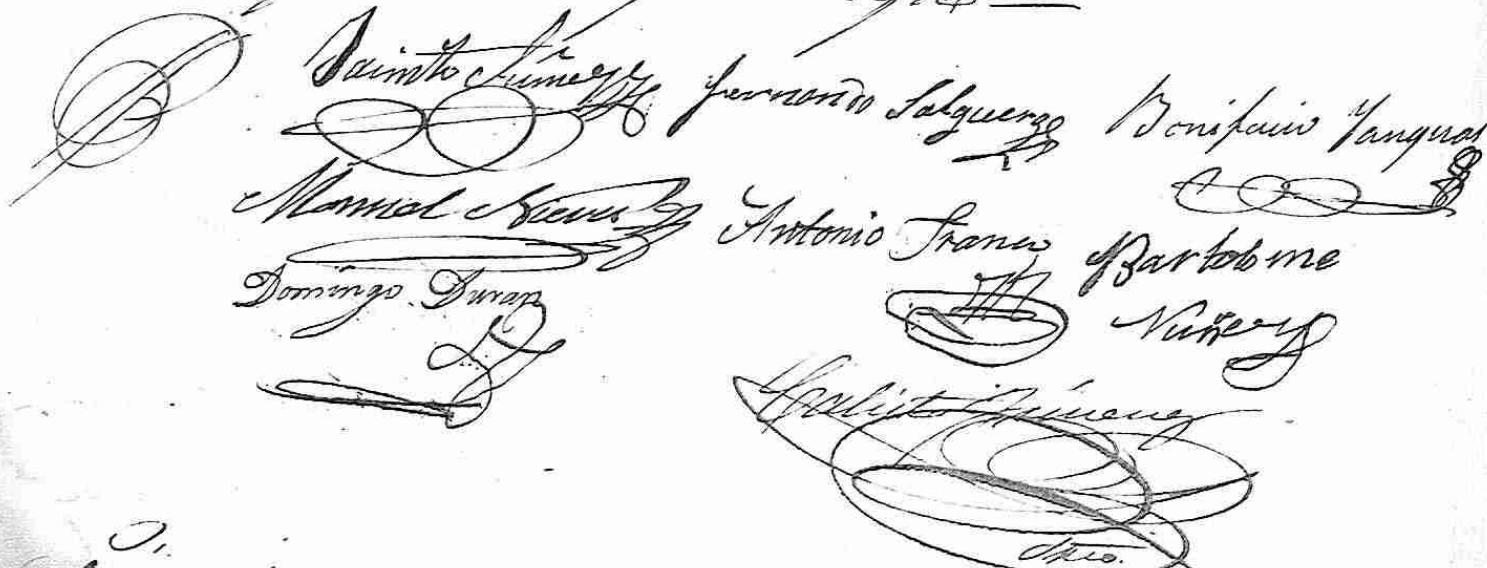 Jacinto Núñez Fernando Salguero Bonifacio Yanguas
Manuel Nieves Antonio Franco Bartolome
Domingo Duran Nuñez
Calisto Jimenez
Srio.